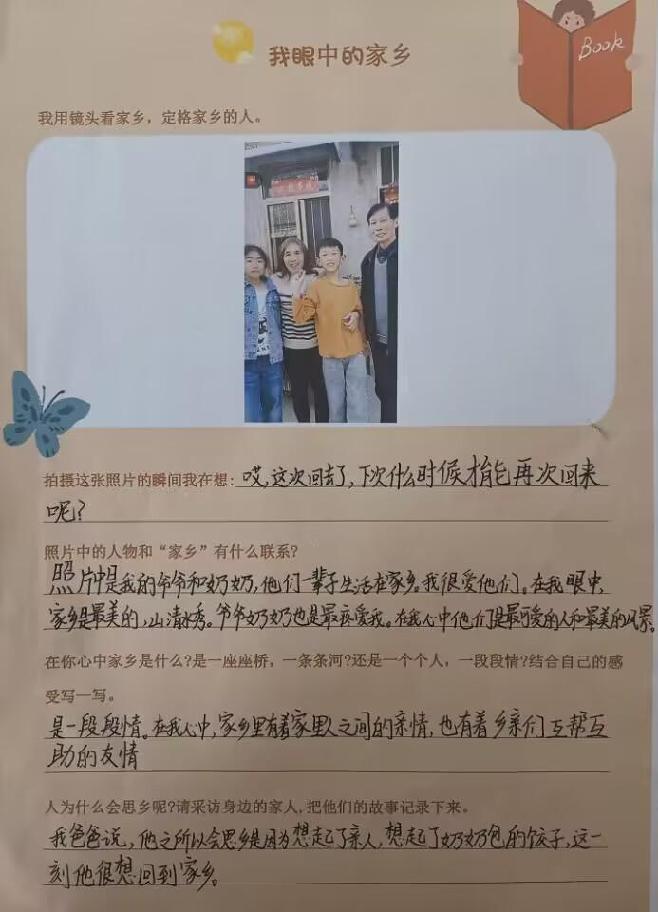 Book
我眼中的家乡
我用镜头看家乡，定格家乡的人。
拍摄这张照片的瞬间我在想：哎，这次回去了，下次什么时候才能再次回来
呢？
照片中的人物和“家乡”有什么联系？
照片中是我的爷爷和奶奶，他们一辈子生活在家乡。我很爱他们。在我眼中，
家乡是最美的，山清水秀。爷爷奶奶也是最疼爱我。在我心中他们是最可爱的人和最美的风景。
在你心中家乡是什么？是一座座桥，一条条河？还是一个个人，一段段情？结合自己的感
受写一写。
是一段段情。在我心中，家乡里有着家里人之间的亲情，也有着乡亲们互帮互
助的友情
人为什么会思乡呢？请采访身边的家人，把他们的故事记录下来。
我爸爸说，他之所以会思乡是因为想起了亲人，想起了奶奶包的饺子，这一
刻他很想回到家乡。